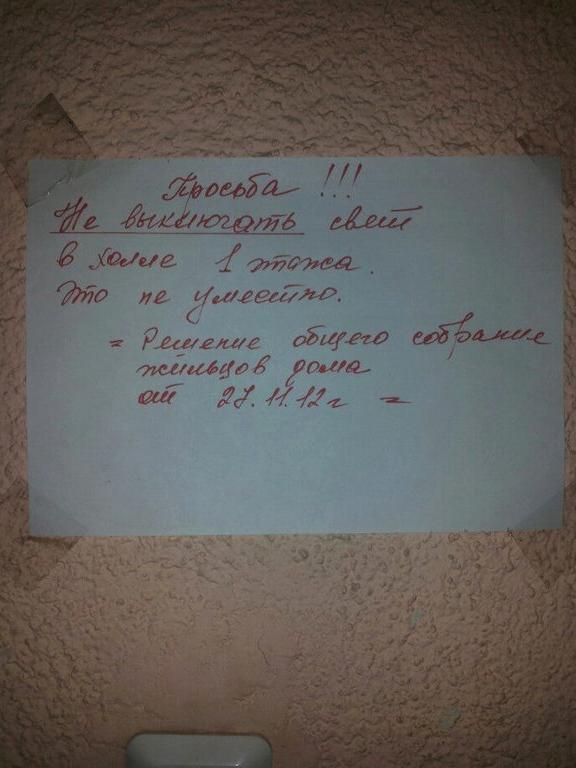 Просьба !!!
Не выключать свет
в холле 1 этажа.
Это не уместно.
= Решение общего собрание
жильцов дома
от 27.11.12г =